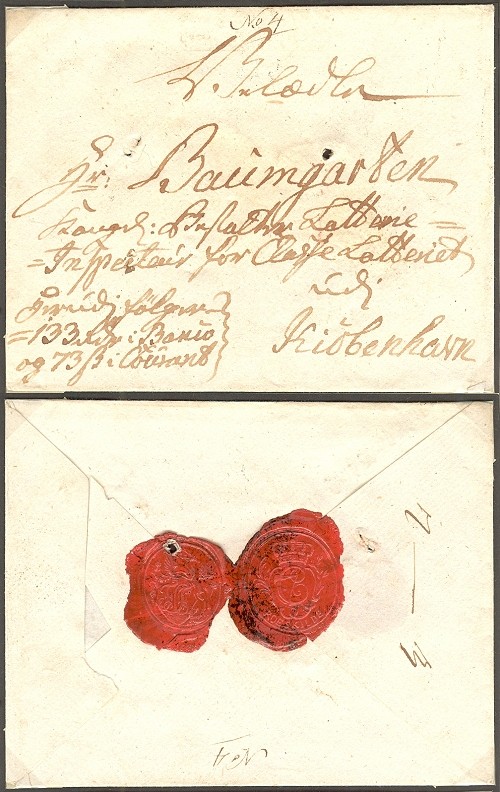 No 4
Velædle
Hr: Baumgarten
Kongel: Bestalter Lotterie =
= Inspecteur for Classe Lotteriet
udi
Kiöbenhavn
Herudj fölger
= 133 rdr i Banco
og 73 ß i Courant
No 4